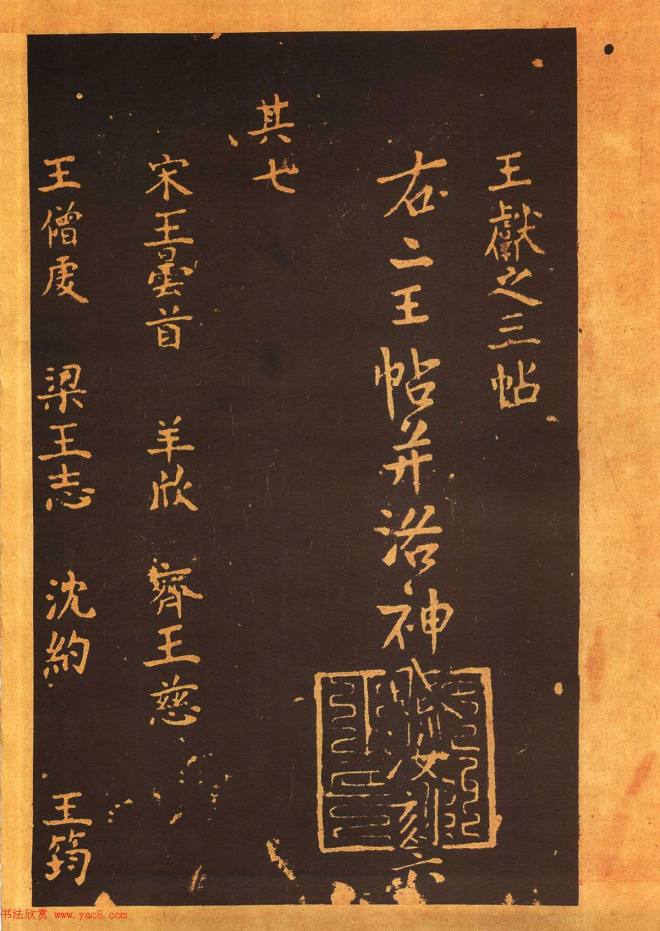 王獻之三帖
右二王帖并洛神
刻六
其七
宋王曇首 羊欣 齊王慈
王僧虔 梁王志 沈約 王筠
书法欣赏 www.yac8.com